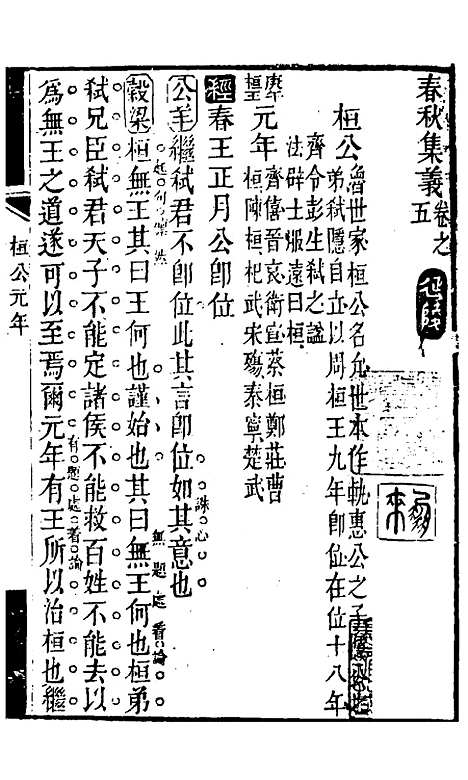 春秋集義卷之五
桓公
魯世家桓公名允世本作軌惠公之子
弟弑隱自立以周桓王九年即位在位十八年
齊令彭生弑之諡
法辟土服遠曰桓
元年
齊僖晉哀衛宣蔡桓鄭莊曹
桓陳桓杞武宋殤秦寧楚武
經春王正月公即位
公羊繼弑君不即位此其言即位如其意也
誅心
穀梁桓無王其曰王何也謹始也其曰無王何也桓弟
起句緊煞
無題處看論
弑兄臣弑君天子不能定諸侯不能救百姓不能去以
為無王之道遂可以至焉爾元年有王所以治桓也繼
有題處看論
桓公元年